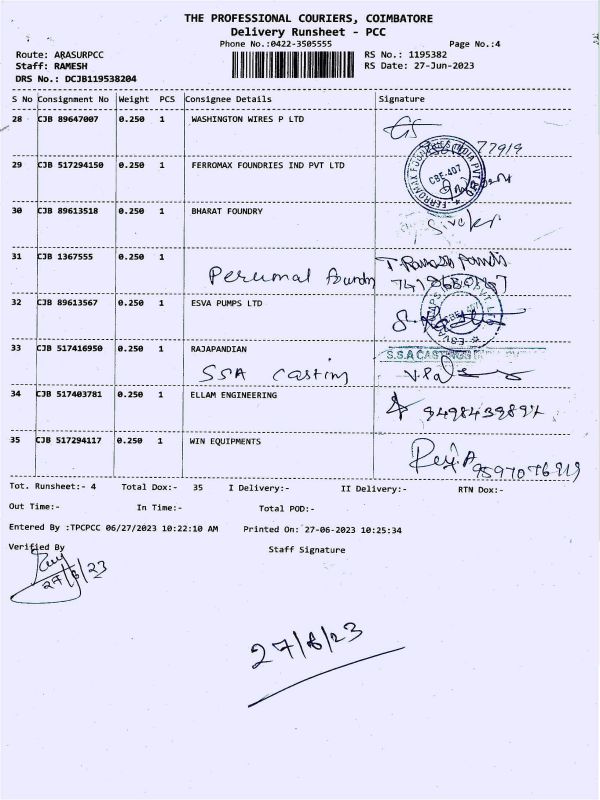 THE PROFESSIONAL COURIERS, COIMBATORE
Delivery Runsheet - PCC
Phone No.:0422-3505555 Page No.:4
Route: ARASURPCC RS No.: 1195382
Staff: RAMESH RS Date: 27-Jun-2023
DRS No.: DCJB119538204
S No Consignment No Weight PCS Consignee Details Signature
28 CJB 89647007 0.250 1 WASHINGTON WIRES P LTD
29 CJB 517294150 0.250 1 FERROMAX FOUNDRIES IND PVT LTD
CBE-407
30 CJB 89613518 0.250 1 BHARAT FOUNDRY
31 CJB 1367555 0.250 1
Perumal foundry
32 CJB 89613567 0.250 1 ESVA PUMPS LTD
33 CJB 517416950 0.250 1 RAJAPANDIAN S.S.A CASTINGS
SSA Casting
34 CJB 517403781 0.250 1 ELLAM ENGINEERING
35 CJB 517294117 0.250 1 WIN EQUIPMENTS
Tot. Runsheet:- 4 Total Dox:- 35 I Delivery:- II Delivery:- RTN Dox:-
Out Time:- In Time:- Total POD:-
Entered By :TPCPCC 06/27/2023 10:22:10 AM Printed On: 27-06-2023 10:25:34
Verified By Staff Signature
27/6/23
27/6/23